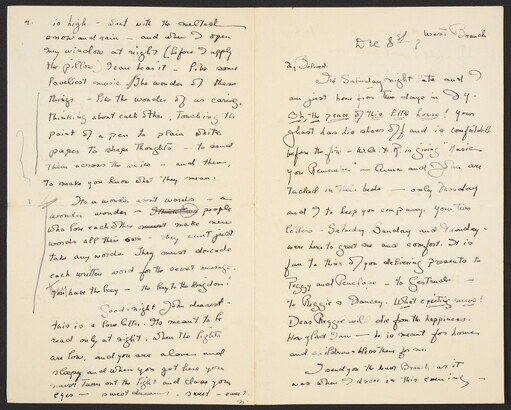 West Branch
Dec 8th
My Beloved.
It's Saturday night late and I
am just home from two days in N.Y.
Oh, the peace of this little house! Your
ghost has his shoes off and is comfortable
before the fire - W.Q.X.R is giving "Music
You Remember" - Anna and John are
tucked in their beds - only Tuesday
and I to keep you company. Your two
letters - Saturday Sunday and Monday -
were here to greet me and comfort. It is
fun to think of you delivering presents to
Peggy and Penelope - to Gertrude -
to Reggie & Dancey. What exciting news!
Dear Reggie will die from the happiness.
How glad I am - he is meant for home
and children - bless them for me.
I send you the West Branch as it
was when I drove in this evening -
4.
is high - what with the melted
snow and rain - and when I open
my window at night (before I apply
the pillow) I can hear it - like some
lovebeat music. The wonder of these
things - like the wonder of us caring,
thinking about each other, touching the
point of a pen to plain white
paper to shape thoughts - to send
them across the miles - and then,
to make you know what they mean.
It's a wonder about words - a
wonder, wonder - people
who love each other must make new
words all their own - they can't just
take any words. They must decode
each written word for the secret message.
You have the key - the key to the kingdom!
Good-night John dearest -
this is a love letter. It's meant to be
read only at night. When the lights
are low, and you are alone and
sleepy and when you get here you
must turn out the light and close your
eyes - sweet dreams - sweet - sweet